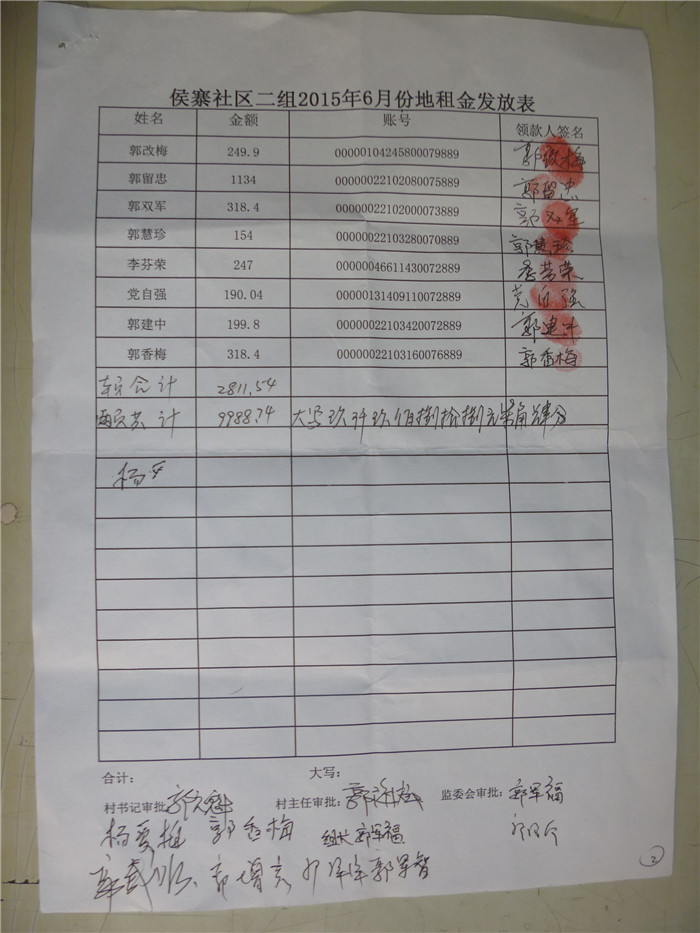 侯寨社区二组2015年6月份地租金发放表
姓名 金额 账号 领款人签名
郭改梅 249.9 00000104245800079889 郭改梅
郭留忠 1134 00000022102080075889 郭留忠
郭双军 318.4 00000022102000073889 郭双军
郭慧珍 154 00000022103280070889 郭慧珍
李芬荣 247 00000046611430072889 李芬荣
党自强 190.04 00000131409110072889 党自强
郭建中 199.8 00000022103420072889 郭建中
郭香梅 318.4 00000022103160076889 郭香梅
本页合计 2811.54
两页共计 9988.74 大写玖仟玖佰捌拾捌元柒角肆分
杨
合计： 大写：
村书记审批： 村主任审批： 监委会审批：郭军福
杨爱梅 郭香梅 组长郭军福
郭增亮 郭军智
2